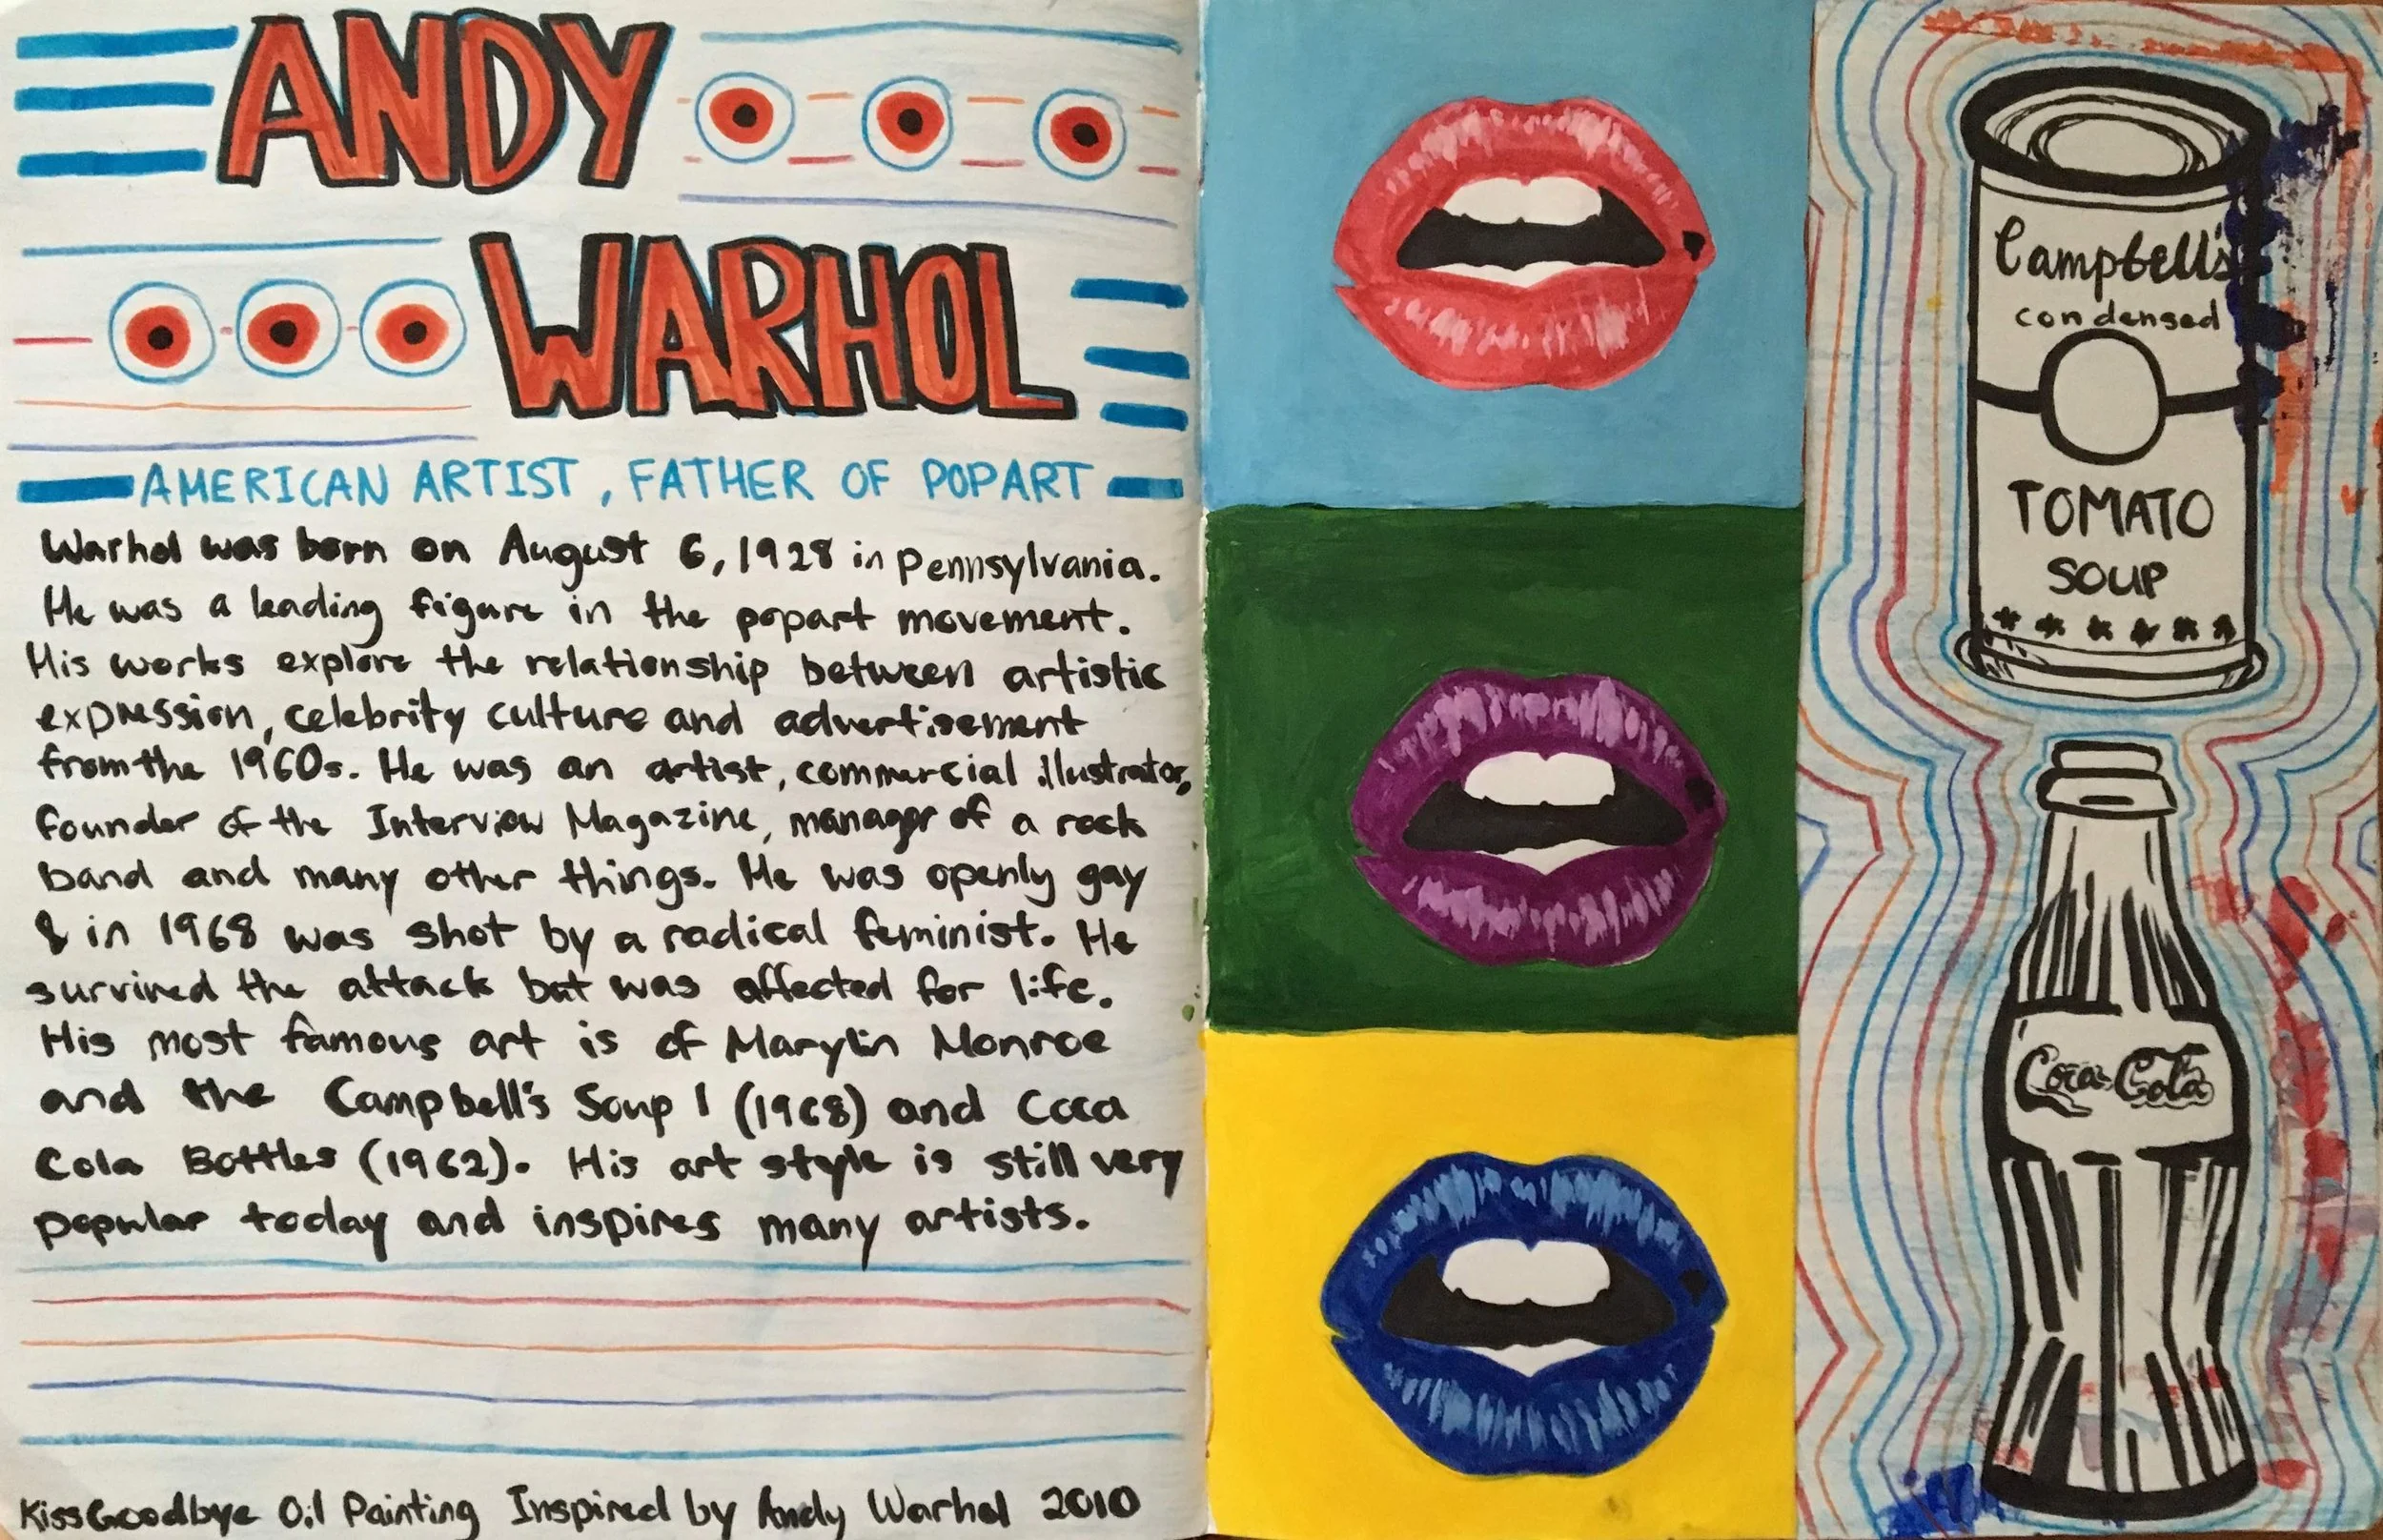 ANDY
WARHOL
AMERICAN ARTIST, FATHER OF POPART
Warhol was born on August 6, 1928 in Pennsylvania.
He was a leading figure in the popart movement.
His works explore the relationship between artistic
expression, celebrity culture and advertisement
from the 1960s. He was an artist, commercial illustrator,
founder of the Interview Magazine, manager of a rock
band and many other things. He was openly gay
& in 1968 was shot by a radical feminist. He
survived the attack but was affected for life.
His most famous art is of Marylin Monroe
and the Campbell's Soup 1 (1968) and Coca
Cola Bottles (1962). His art style is still very
popular today and inspires many artists.
Kiss Goodbye Oil Painting Inspired by Andy Warhol 2010
Campbell's
condensed
TOMATO
SOUP
Coca-Cola